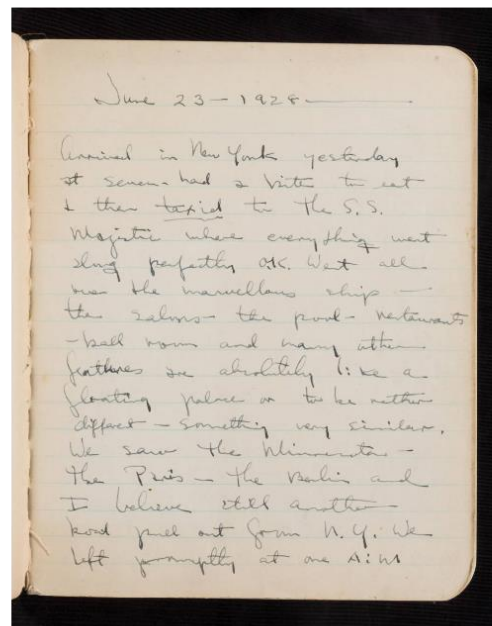 June 23 - 1928
Arrived in New York yesterday
at seven - had a bite to eat
& then taxied to the S.S.
Majestic where everything went
along perfectly O.K. Went all
over the marvellous ship -
the salons - the pool - restaurants
- ball room and many other
features are absolutely like a
floating palace or to be rather
different - something very similar.
We saw the Minnewaska -
the Paris - the Berlin and
I believe still another
boat pull out from N.Y. We
left promptly at one A.M